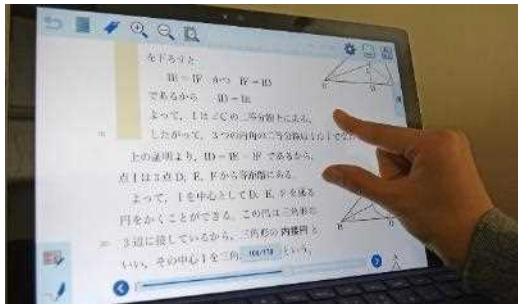 を下ろすと
IE = IF かつ IF = ID
であるから ID = IE
よって、Iは∠Cの二等分線上にある。
したがって、3つの内角の二等分線は1点Iで
上の証明より、ID = IE = IF であるから、
点Iは3点D, E, Fから等距離にある。
よって、Iを中心としてD, E, Fを通る
円をかくことができる。この円は三角形の
3辺に接しているから、三角形の内接円と
いい、その中心Iを三角 という。